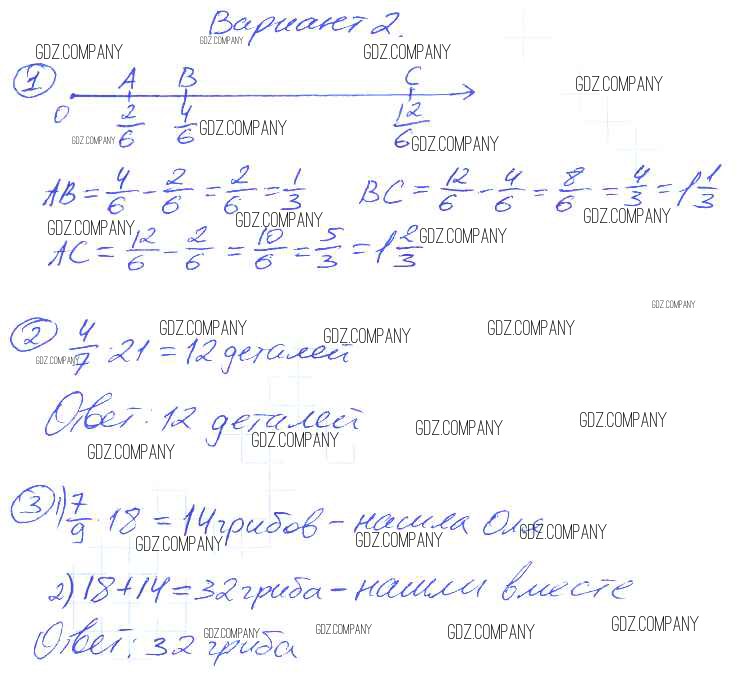 Вариант 2.
GDZ.COMPANY
GDZ.COMPANY GDZ.COMPANY
1 A B C GDZ.COMPANY
0 2/6 4/6 12/6
GDZ.COMPANY GDZ.COMPANY GDZ.COMPANY
AB = 4/6 - 2/6 = 2/6 = 1/3 BC = 12/6 - 4/6 = 8/6 = 4/3 = 1 1/3
GDZ.COMPANY GDZ.COMPANY GDZ.COMPANY
AC = 12/6 - 2/6 = 10/6 = 5/3 = 1 2/3 GDZ.COMPANY
GDZ.COMPANY
GDZ.COMPANY GDZ.COMPANY GDZ.COMPANY
2 4/7 · 21 = 12 деталей
GDZ.COMPANY
Ответ: 12 деталей
GDZ.COMPANY GDZ.COMPANY
GDZ.COMPANY GDZ.COMPANY
3 1) 7/9 · 18 = 14 грибов - нашла Оля
GDZ.COMPANY GDZ.COMPANY GDZ.COMPANY
2) 18 + 14 = 32 гриба - нашли вместе
GDZ.COMPANY GDZ.COMPANY GDZ.COMPANY GDZ.COMPANY
Ответ: 32 гриба